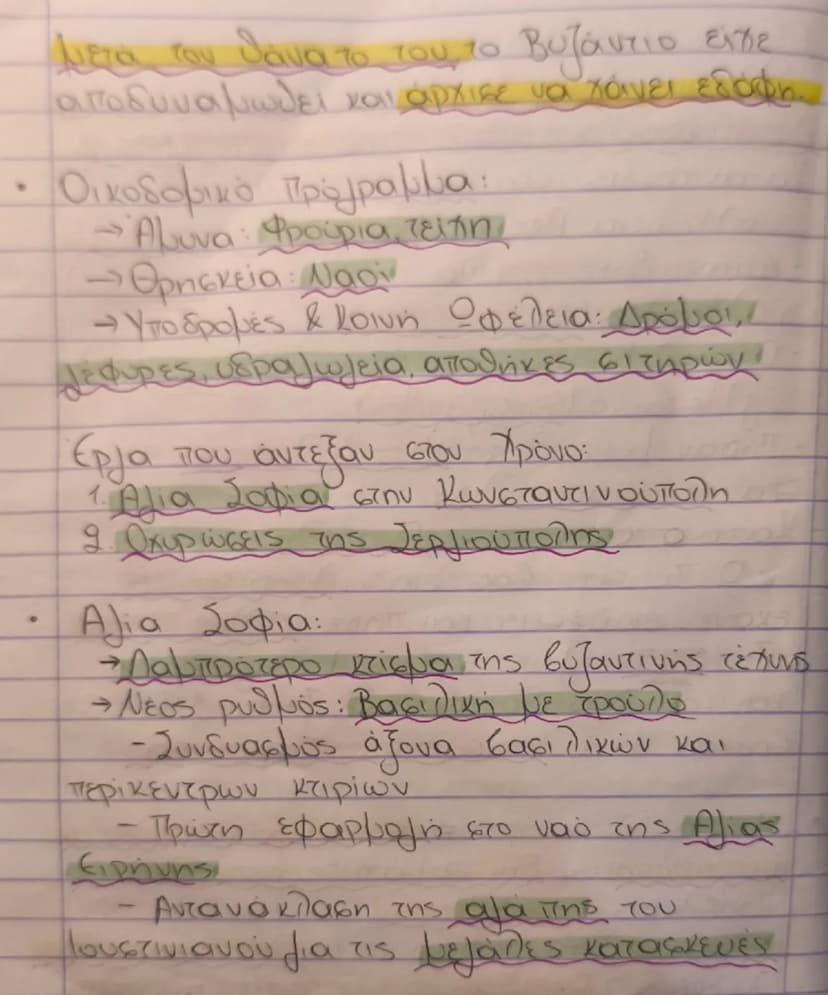 Μετά τον θάνατο του το Βυζάντιο είχε
αποδυναμωθεί και άρχισε να χάνει εδάφη.
• Οικοδομικό Πρόγραμμα:
→ Άμυνα: Φρούρια, τείχη
→ Θρησκεία: Ναοί
→ Υποδομές & Κοινή Ωφέλεια: Δρόμοι,
γέφυρες, υδραγωγεία, αποθήκες σιτηρών
Έργα που άντεξαν στον Χρόνο:
1. Αγία Σοφία στην Κωνσταντινούπολη
2. Οχυρώσεις της Σεργιούπολης
• Αγία Σοφία:
→ Λαμπρότερο κτίσμα της βυζαντινής τέχνης
→ Νέος ρυθμός: Βασιλική με τρούλο
- Συνδυασμός άξονα βασιλικών και
περίκεντρων κτιρίων
- Πρώτη εφαρμογή στο ναό της Αγίας
Ειρήνης
- Αντανάκλαση της αγάπης του
Ιουστινιανού για τις μεγάλες κατασκευές